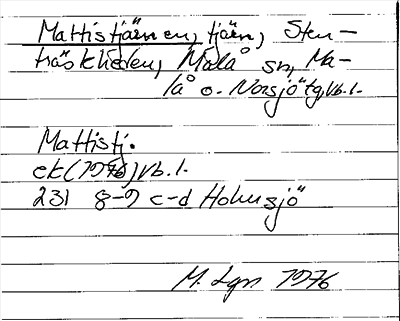 Mattistjärnen, tjärn, Sten-
träskliden, Malå sn, Ma-
lå o. Norsjö tg, Vb. l.
Mattistj.
ek (1976) Vb. l.
231 8-9 c-d Holmsjö
M. Lgn 1976